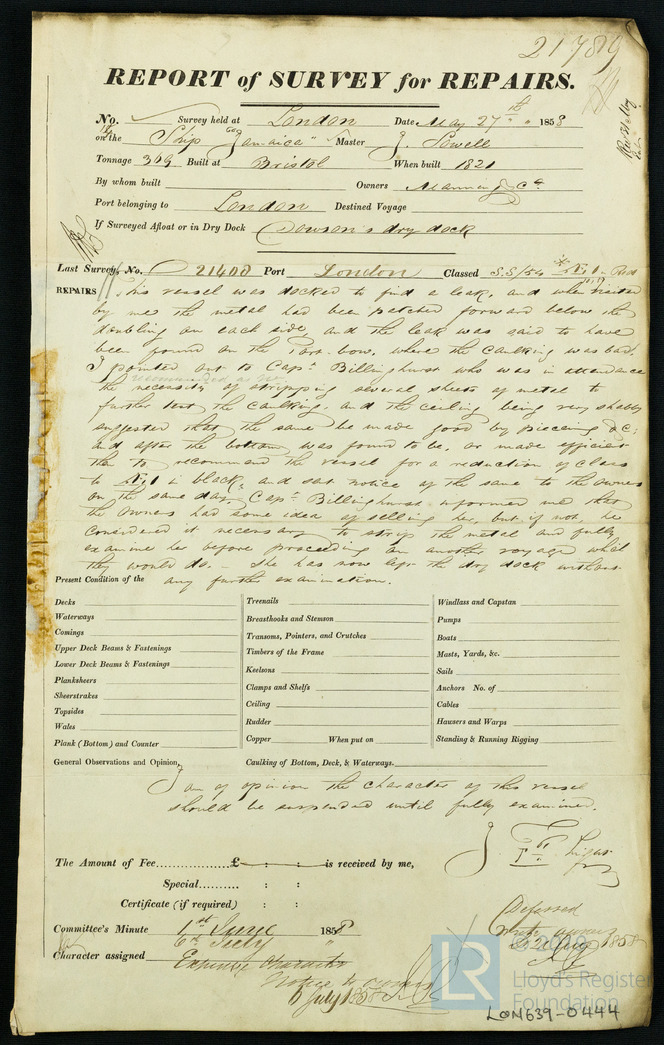 21789
REPORT of SURVEY for REPAIRS.
No. Survey held at London Date May 27th 1858
on the Ship "Jamaica" Master J. Sowell
Tonnage 309 Built at Bristol When built 1821
By whom built Owners Manning & Co.
Port belonging to London Destined Voyage
If Surveyed Afloat or in Dry Dock Dowson's dry dock
Last Survey, No. 21400 Port London Classed S.S/54 Æ1 Red
REPAIRS This vessel was docked to find a leak, and when visited
by me the metal had been patched forward below the
doubling on each side, and the leak was said to have
been found on the Port bow, where the caulking was bad.
I pointed out to Capt. Billinghurst who was in attendance
the necessity of stripping several sheets of metal to
further test the caulking, and the ceiling being very shabby
suggested that the same be made good by pieceing &c;
and after the bottom was found to be, or made efficient
then to recommend the vessel for a reduction of class
to Æ1 in black, and sat notice of the same to the owners
on the same day. Capt. Billinghurst informed me that
the owners had some idea of selling her, but if not, he
considered it necessary to strip the metal and fully
examine her before proceeding on another voyage which
they would do. She has now left the dry dock without
any further examination.
Present Condition of the
Decks
Waterways
Comings
Upper Deck Beams & Fastenings
Lower Deck Beams & Fastenings
Planksheers
Sheerstrakes
Topsides
Wales
Plank (Bottom) and Counter
Treenails
Breasthooks and Stemson
Transoms, Pointers, and Crutches
Timbers of the Frame
Keelsons
Clamps and Shelfs
Ceiling
Rudder
Copper When put on
Windlass and Capstan
Pumps
Boats
Masts, Yards, &c.
Sails
Anchors No. of
Cables
Hawsers and Warps
Standing & Running Rigging
General Observations and Opinion, Caulking of Bottom, Deck, & Waterways.
I am of opinion the character of this vessel
should be suspended until fully examined.
The Amount of Fee............£ : : is received by me,
Special......... : :
Certificate (if required) : :
Committee's Minute 1st June 1858
6th July "
Character assigned Expunge Character
Notice to owners
6 July 1858
Deferred
write owners
1858
© 2019
LR
Lloyd's Register
Foundation
LON639-0444